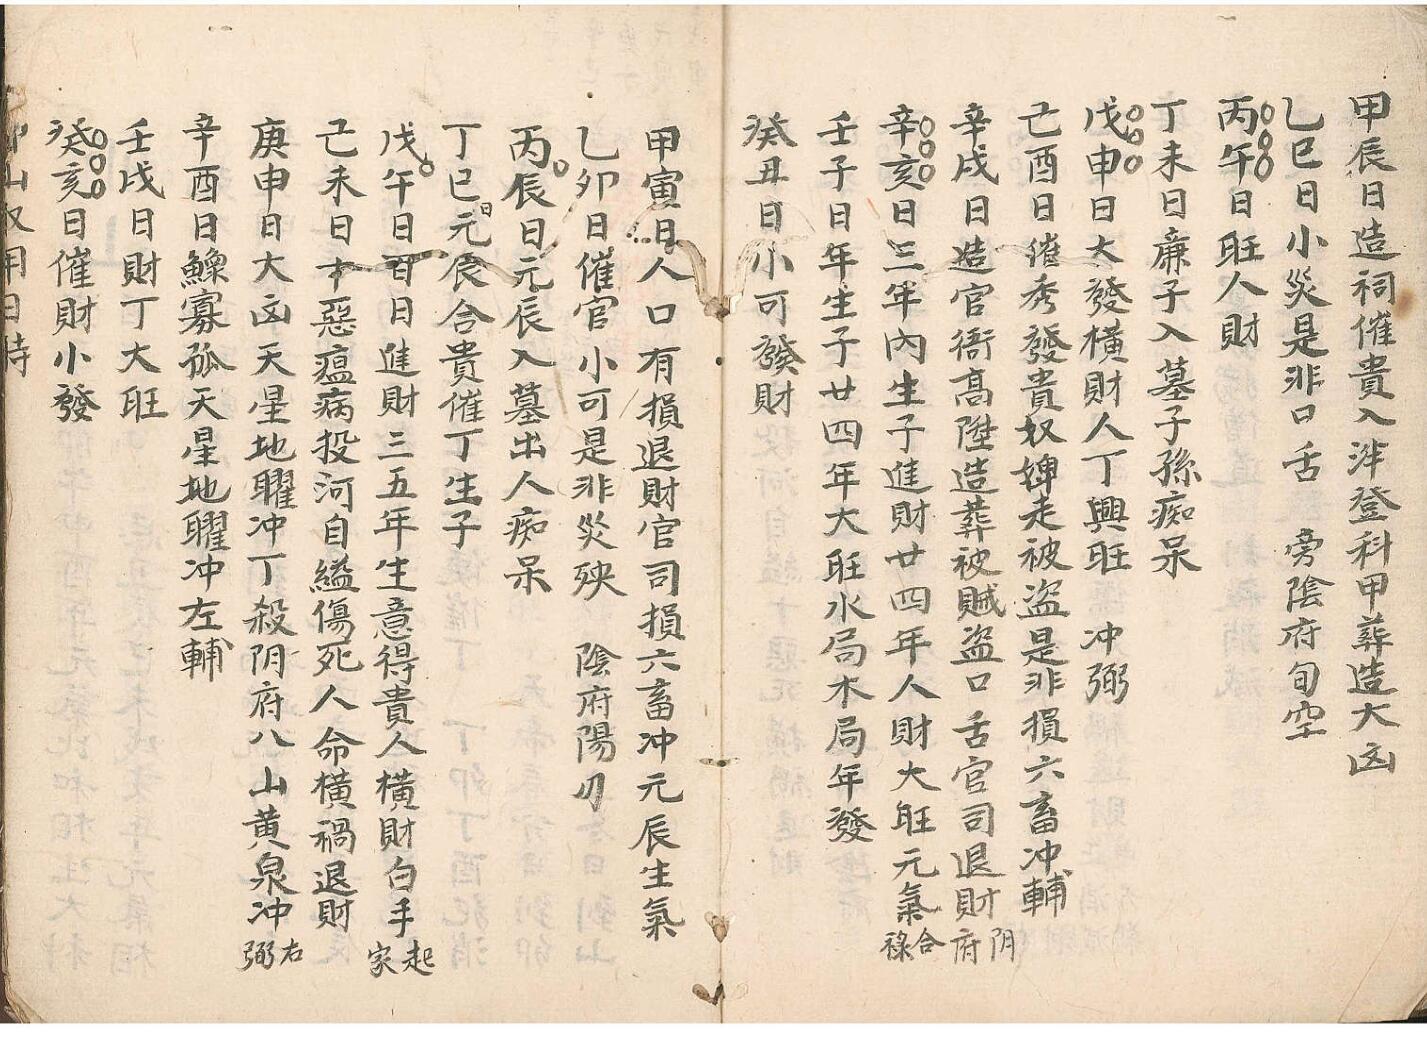 甲辰日造祠催貴入泮登科甲葬造大凶
乙巳日小災是非口舌 旁陰府旬空
丙午日旺人財
丁未日廉子入墓子孫痴呆
戊申日大發橫財人丁興旺 冲弼
己酉日催秀發貴奴婢走被盗是非損六畜冲輔
辛戌日造官衙高陞造葬被賊盗口舌官司退財阴府
辛亥日三年內生子進財廿四年人財大旺元氣合祿
壬子日年生子廿四年大旺水局木局年發
癸丑日小可發財
甲寅日人口有損退財官司損六畜冲元辰生氣
乙卯日催官小可是非災殃 陰府陽刃
丙辰日元辰入墓出人痴呆
丁巳日元辰合貴催丁生子
戊午日百日進財三五年生意得貴人橫財白手起家
己未日十惡瘟病投河自縊傷死人命橫禍退財
庚申日大凶天星地曜冲丁殺阴府八山黄泉冲右弼
辛酉日鰥寡孤天星地曜冲左輔
壬戌日財丁大旺
癸亥日催財小發
山用日